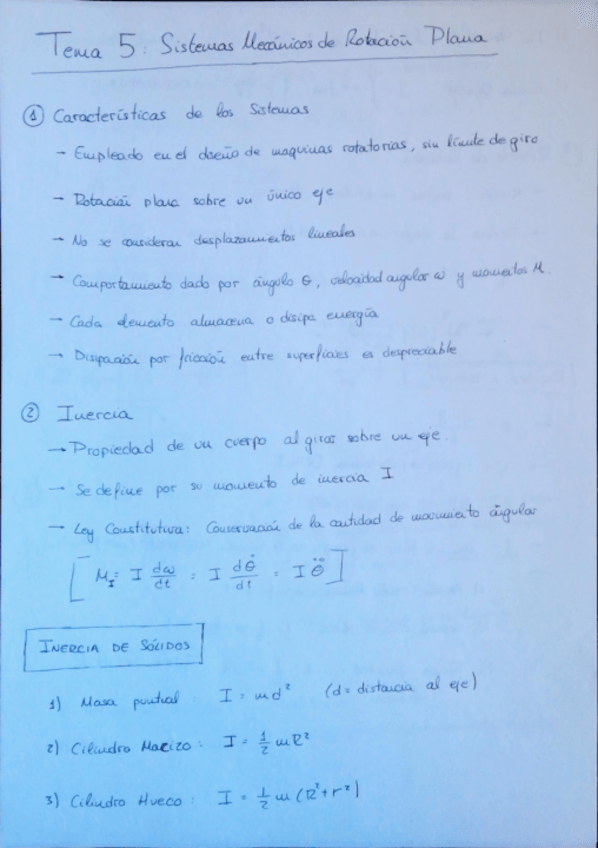 Tema 5: Sistemas Mecánicos de Rotación Plana
① Características de los Sistemas
→ Empleado en el diseño de maquinas rotatorias, sin límite de giro
→ Rotación plana sobre un único eje
→ No se consideran desplazamientos lineales
→ Comportamiento dado por ángulo θ, velocidad angular ω y momentos M.
→ Cada elemento almacena o disipa energía
→ Disipación por fricción entre superficies es despreciable
② Inercia
→ Propiedad de un cuerpo al girar sobre un eje.
→ Se define por su momento de inercia I
→ Ley Constitutiva: Conservación de la cantidad de movimiento ángular
[M_I = I dω/dt = I dθ̇/dt = I θ̈]
INERCIA DE SÓLIDOS
1) Masa puntual: I = md² (d = distancia al eje)
2) Cilindro Macizo: I = 1/2 mR²
3) Cilindro Hueco: I = 1/2 m (R² + r²)